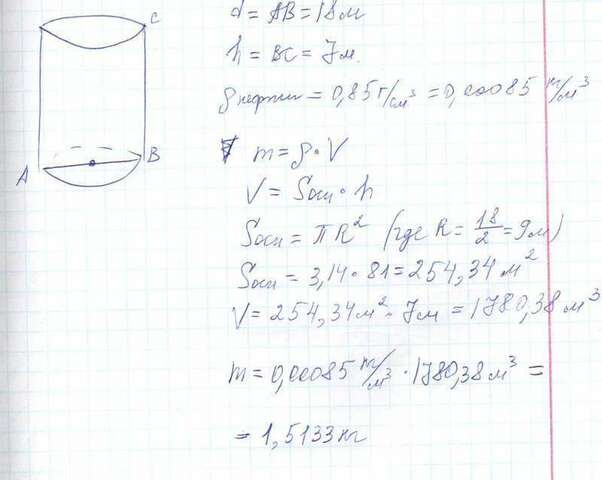 C
B
A
d = AB = 18 м
h = BC = 7 м.
ρ нефти = 0,85 г/см³ = 0,00085 т/м³
m = ρ · V
V = Sосн · h
Sосн = πR² (где R = 18/2 = 9 м)
Sосн = 3,14 · 81 = 254,34 м²
V = 254,34 м² · 7 м = 1780,38 м³
m = 0,00085 т/м³ · 1780,38 м³ =
= 1,5133